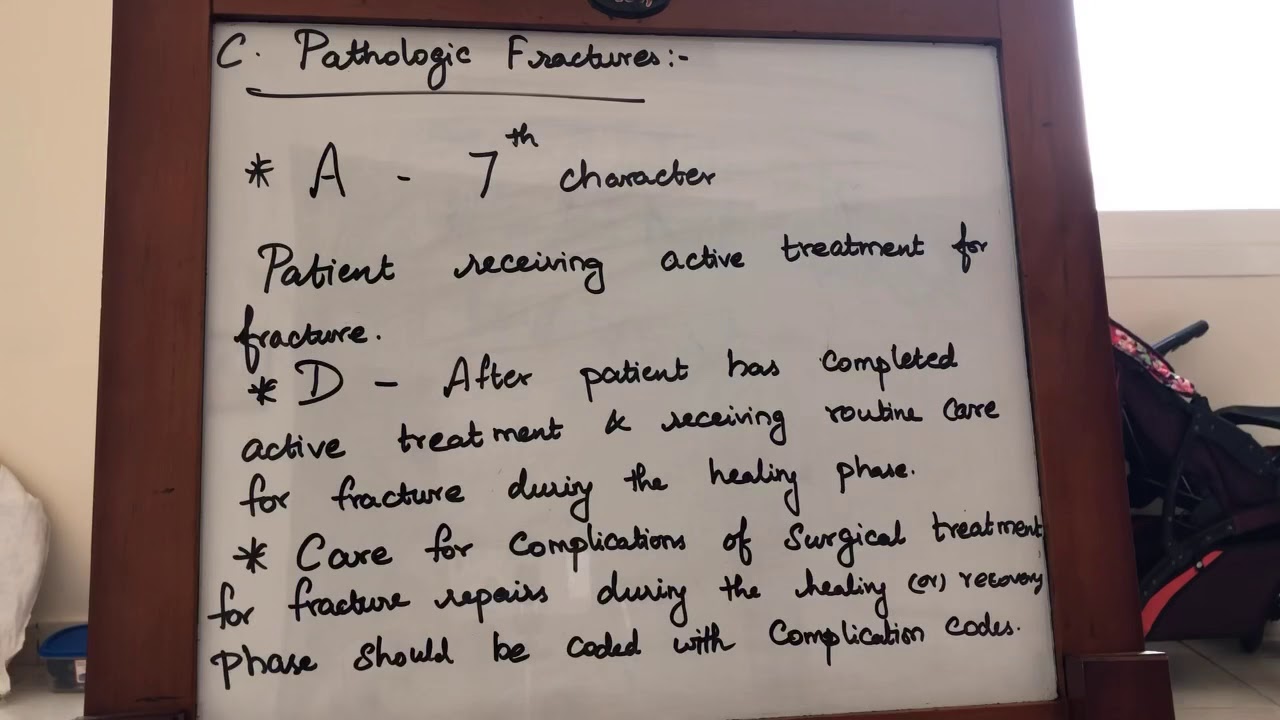 C. Pathologic Fractures:-
* A - 7th character
Patient receiving active treatment for
fracture.
* D - After patient has completed
active treatment & receiving routine care
for fracture during the healing phase.
* Care for complications of Surgical treatment
for fracture repairs during the healing (or) recovery
phase should be coded with Complication codes.